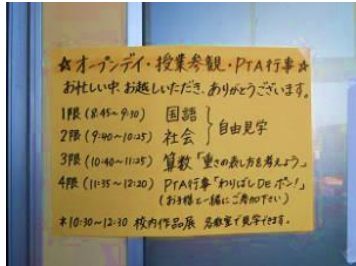 ☆オープンデイ・授業参観・PTA行事☆
お忙しい中、お越しいただき、ありがとうございます。
1限 (8:45~9:30) 国語
2限 (9:40~10:25) 社会 } 自由見学
3限 (10:40~11:25) 算数「重さの表し方を考えよう」
4限 (11:35~12:20) PTA行事「わりばしDEポン!」
(お子様と一緒にご参加下さい)
*10:30~12:30 校内作品展 各教室で見学できます。